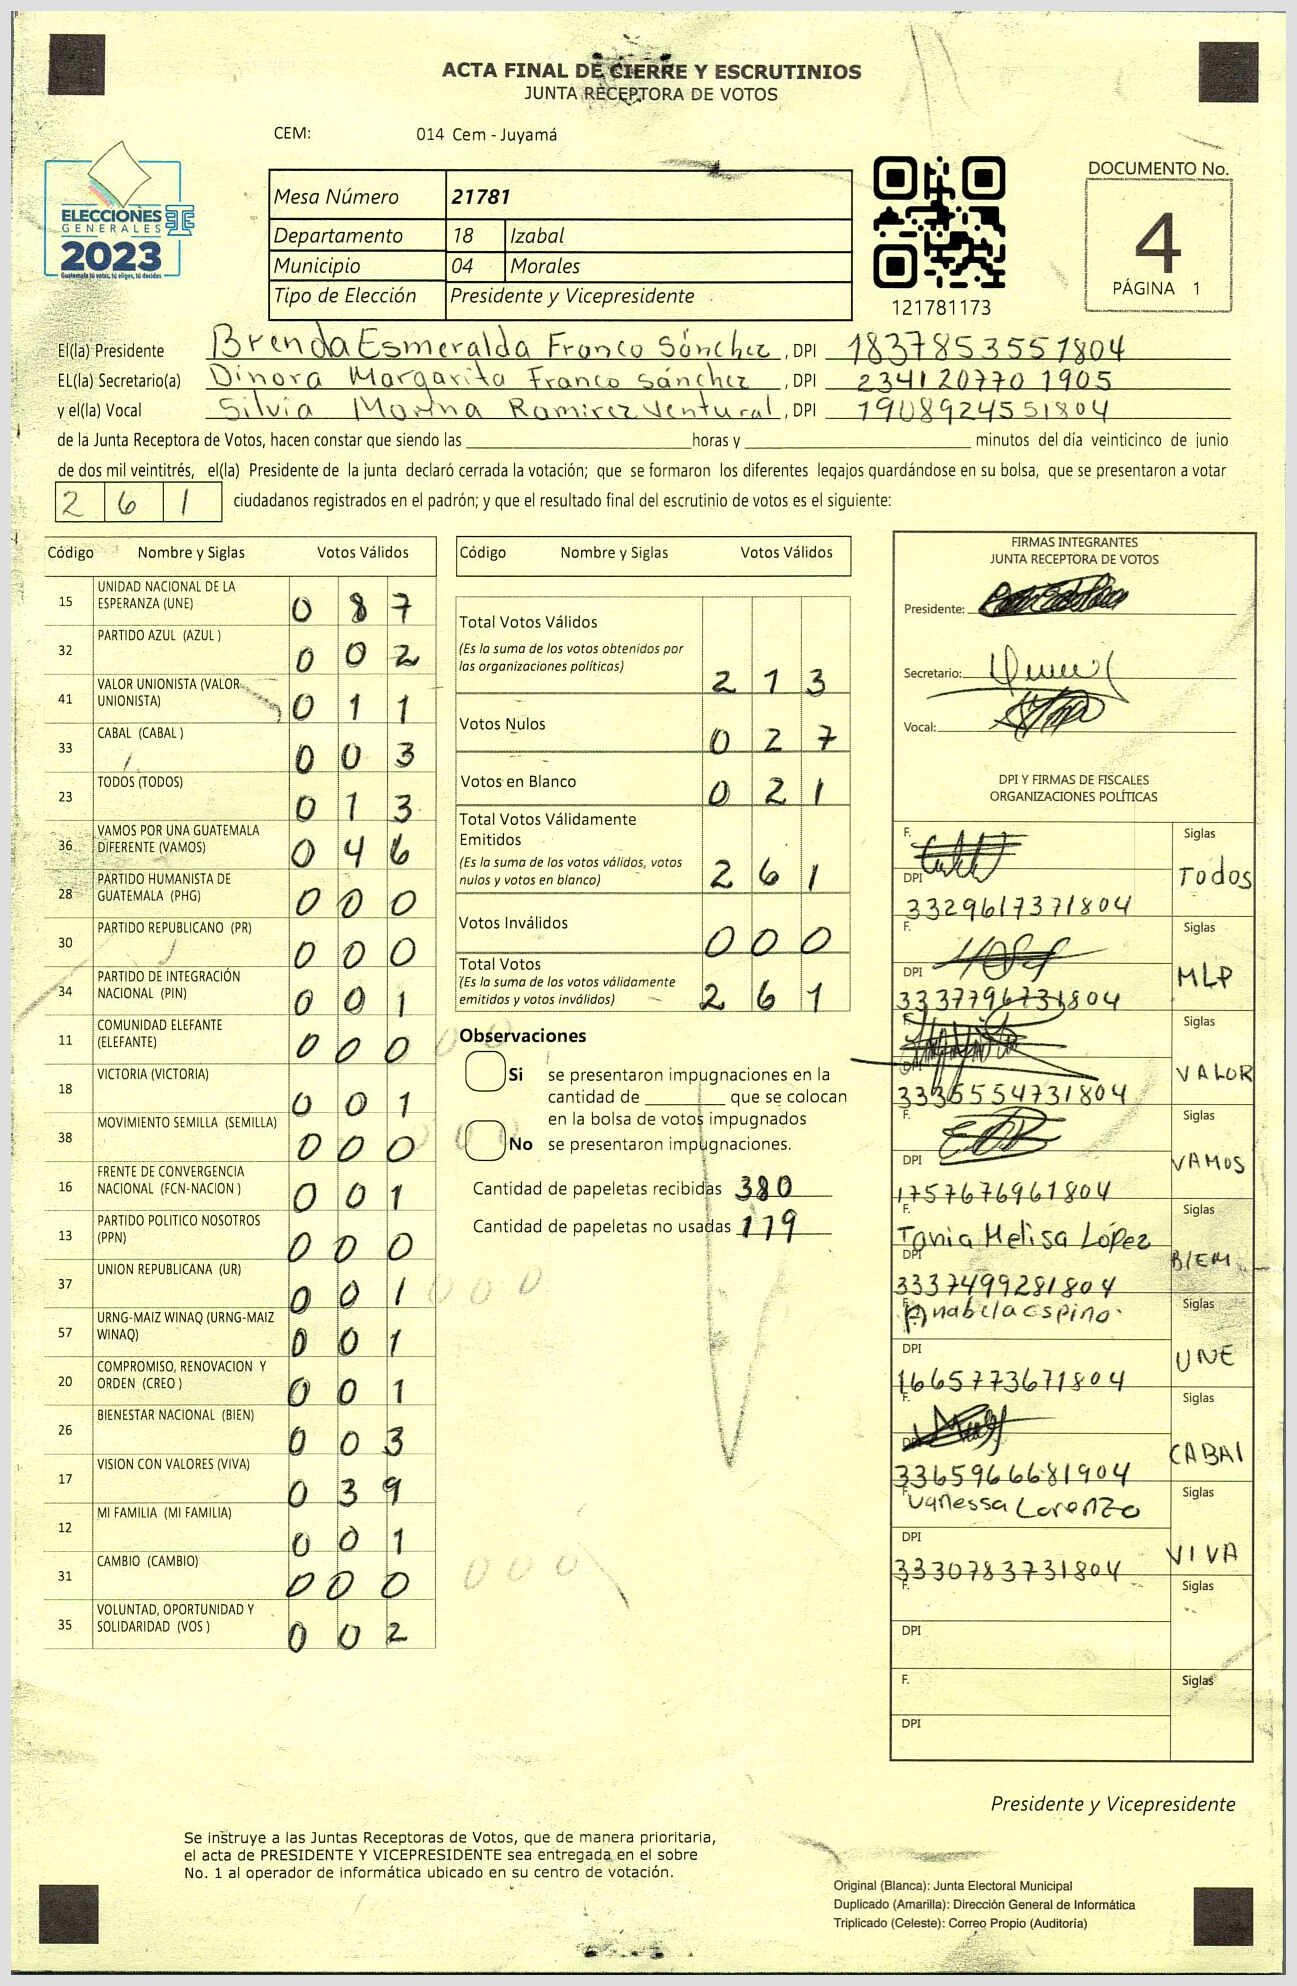 ACTA FINAL DE CIERRE Y ESCRUTINIOS
JUNTA RECEPTORA DE VOTOS
CEM: 014 Cem - Juyamá
ELECCIONES
GENERALES
2023
Guatemala tú votas, tú eliges, tú decides
Mesa Número 21781
Departamento 18 Izabal
Municipio 04 Morales
Tipo de Elección Presidente y Vicepresidente
121781173
DOCUMENTO No.
4
PÁGINA 1
El(la) Presidente Brenda Esmeralda Franco Sánchez, DPI 1837853551804
EL(la) Secretario(a) Dinora Margarita Franco Sánchez, DPI 2341207701905
y el(la) Vocal Silvia Marina Ramirez Ventural, DPI 1908924551804
de la Junta Receptora de Votos, hacen constar que siendo las ____ horas y ____ minutos del día veinticinco de junio
de dos mil veintitrés, el(la) Presidente de la junta declaró cerrada la votación; que se formaron los diferentes legajos guardándose en su bolsa, que se presentaron a votar
2 6 1 ciudadanos registrados en el padrón; y que el resultado final del escrutinio de votos es el siguiente:
Código Nombre y Siglas Votos Válidos
15 UNIDAD NACIONAL DE LA ESPERANZA (UNE) 0 8 7
32 PARTIDO AZUL (AZUL ) 0 0 2
41 VALOR UNIONISTA (VALOR UNIONISTA) 0 1 1
33 CABAL (CABAL ) 0 0 3
23 TODOS (TODOS) 0 1 3
36 VAMOS POR UNA GUATEMALA DIFERENTE (VAMOS) 0 4 6
28 PARTIDO HUMANISTA DE GUATEMALA (PHG) 0 0 0
30 PARTIDO REPUBLICANO (PR) 0 0 0
34 PARTIDO DE INTEGRACIÓN NACIONAL (PIN) 0 0 1
11 COMUNIDAD ELEFANTE (ELEFANTE) 0 0 0
18 VICTORIA (VICTORIA) 0 0 1
38 MOVIMIENTO SEMILLA (SEMILLA) 0 0 0
16 FRENTE DE CONVERGENCIA NACIONAL (FCN-NACION ) 0 0 1
13 PARTIDO POLITICO NOSOTROS (PPN) 0 0 0
37 UNION REPUBLICANA (UR) 0 0 1
57 URNG-MAIZ WINAQ (URNG-MAIZ WINAQ) 0 0 1
20 COMPROMISO, RENOVACION Y ORDEN (CREO ) 0 0 1
26 BIENESTAR NACIONAL (BIEN) 0 0 3
17 VISION CON VALORES (VIVA) 0 3 9
12 MI FAMILIA (MI FAMILIA) 0 0 1
31 CAMBIO (CAMBIO) 0 0 0
35 VOLUNTAD, OPORTUNIDAD Y SOLIDARIDAD (VOS ) 0 0 2
Código Nombre y Siglas Votos Válidos
Total Votos Válidos
(Es la suma de los votos obtenidos por
las organizaciones políticas) 2 1 3
Votos Nulos 0 2 7
Votos en Blanco 0 2 1
Total Votos Válidamente
Emitidos
(Es la suma de los votos válidos, votos
nulos y votos en blanco) 2 6 1
Votos Inválidos 0 0 0
Total Votos
(Es la suma de los votos válidamente
emitidos y votos inválidos) 2 6 1
Observaciones
Si se presentaron impugnaciones en la
cantidad de ____ que se colocan
en la bolsa de votos impugnados
No se presentaron impugnaciones.
Cantidad de papeletas recibidas 380
Cantidad de papeletas no usadas 119
FIRMAS INTEGRANTES
JUNTA RECEPTORA DE VOTOS
Presidente:
Secretario:
Vocal:
DPI Y FIRMAS DE FISCALES
ORGANIZACIONES POLÍTICAS
F. Siglas
DPI Todos
3329617371804
F. Siglas
DPI MLP
3337796731804
F. Siglas
VALOR
3335554731804
F. Siglas
DPI VAMOS
1757676961804
F. Siglas
Tania Melisa López
DPI BIEM
3337499281804
F. Siglas
Anabela Espino
DPI UNE
1665773671804
F. Siglas
DPI CABAl
3365966681904
F. Siglas
Vanessa Lorenzo
DPI VIVA
3330783731804
F. Siglas
DPI
F. Siglas
DPI
Presidente y Vicepresidente
Se instruye a las Juntas Receptoras de Votos, que de manera prioritaria,
el acta de PRESIDENTE Y VICEPRESIDENTE sea entregada en el sobre
No. 1 al operador de informática ubicado en su centro de votación.
Original (Blanca): Junta Electoral Municipal
Duplicado (Amarilla): Dirección General de Informática
Triplicado (Celeste): Correo Propio (Auditoría)